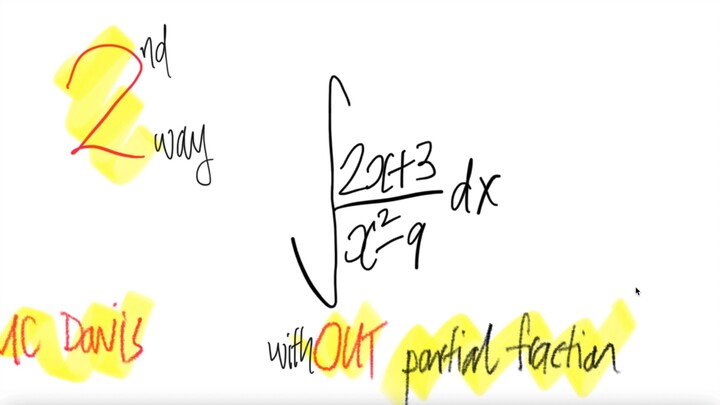 2nd way
∫ (2x+3)/(x²-9) dx
withOUT partial fraction